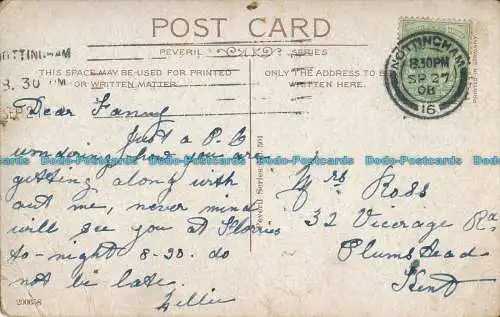 POST CARD
PEVERIL SERIES
NOTTINGHAM
8.30 PM
SEP
THIS SPACE MAY BE USED FOR PRINTED
OR WRITTEN MATTER
ONLY THE ADDRESS TO BE
WRITTEN HERE.
NOTTINGHAM
8.30PM
SP 27
08
16
Dear Fanny
Just a P.C
how you are
getting along with
out me, never mind
will see you at Florries
to-night 8-30. do
not be late.
Lillie
Mrs Ross
32 Vicarage R
Plumstead
Kent
Peveril Series No. 501
200658
Dodo-Postcards Dodo-Postcards Dodo-Postcards Dodo-Postcards Dodo-Postcards